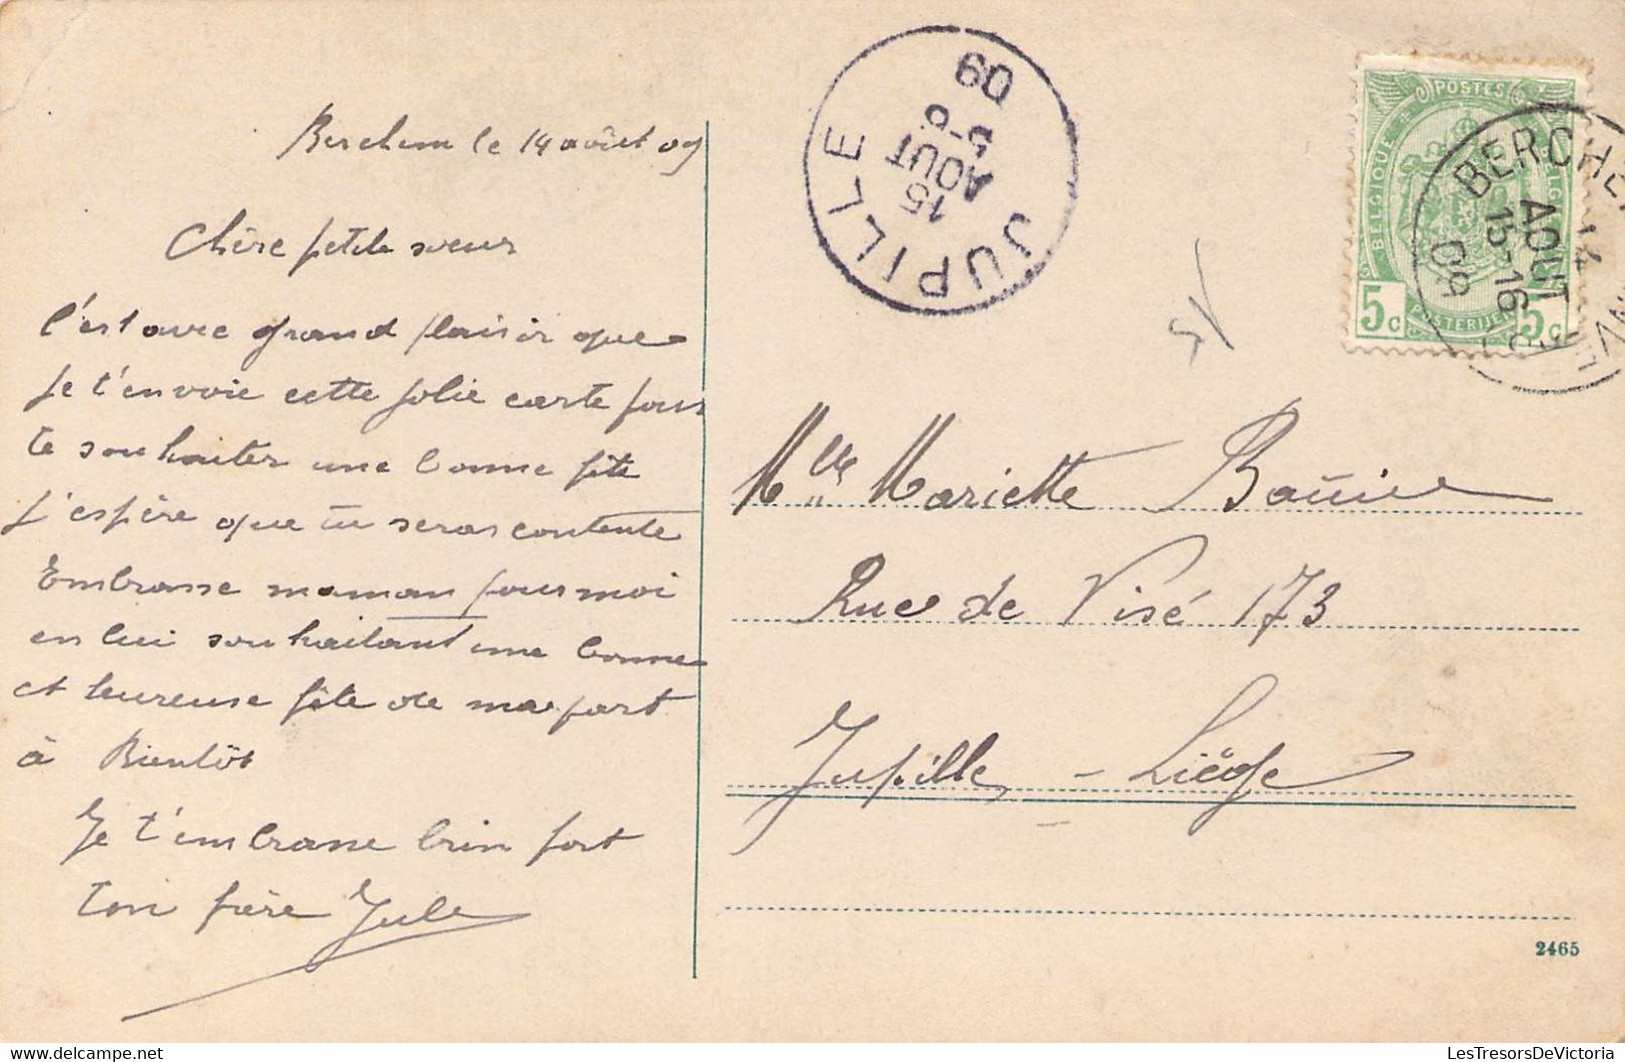 Berchem le 14 août 09
Chère petite sœur
C'est avec grand plaisir que
je t'envoie cette jolie carte pour
te souhaiter une bonne fête
j'espère que tu seras contente
Embrasse maman pour moi
en lui souhaitant une bonne
et heureuse fête de ma part
à Bientôt
Je t'embrasse bien fort
ton frère Jule
JUPILLE
15
AOUT
5-6
09
POSTES
BELGIQUE
BELGIË
5c
5c
POSTERIJEN
BERCHEM
14
AOUT
15-16
09
Mlle Mariette
Rue de Visé 173
Jupille - Liége
2465
LesTresorsDeVictoria.com
LesTresorsDeVictoria